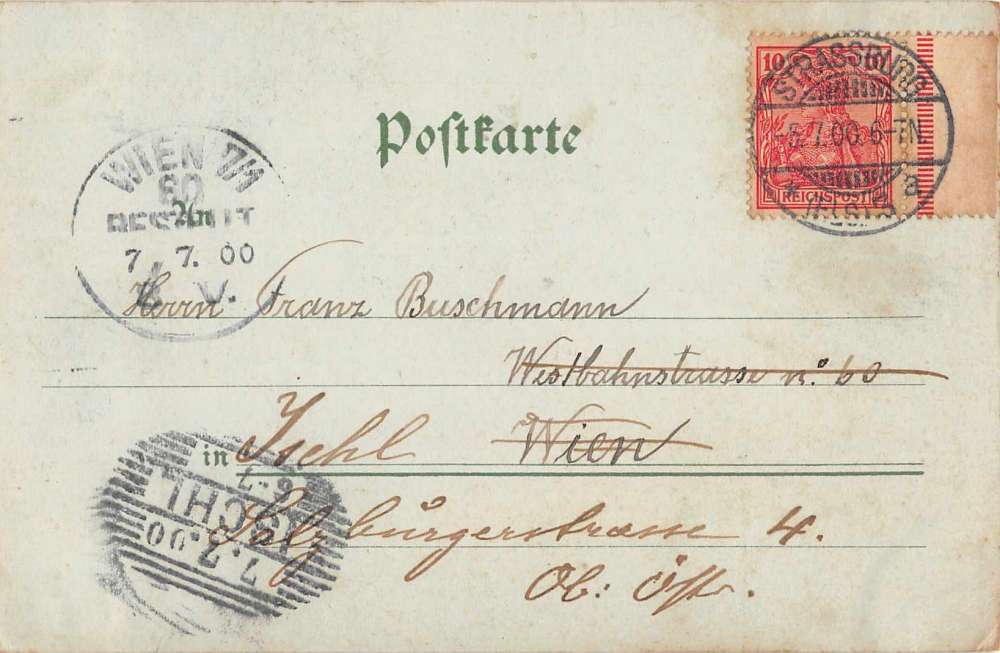 Postkarte
10
REICHSPOST
STRASSBURG
-5.7.00.6-7N.
* (ELS.) a
WIEN 7/1
60
BESTELLT
7 7. 00
V.
An
Herrn Franz Buschmann
Westbahnstrasse n.º 60
Wien
in Ischl
Salzburgerstrasse 4.
Ob: Öst.
ISCHL
6-7
7.7.00